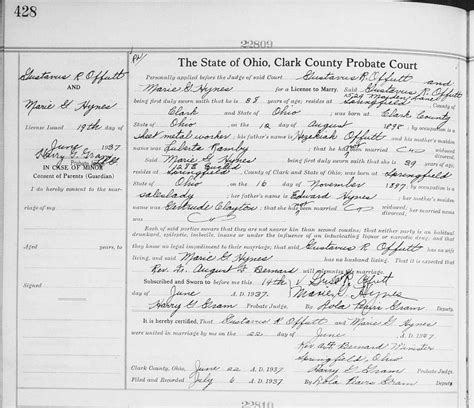 428
22809
Gustavus R. Offutt
AND
Marie G. Hynes
License Issued 19th day of
June 1937
Harry G. Gram
Probate Judge
IN CASE OF MINOR
Consent of Parents (Guardian)
I do hereby consent to the
marriage of my
Aged years, to
Signed
The State of Ohio, Clark County Probate Court
Personally applied before the Judge of said Court Gustavus R. Offutt and
Marie G. Hynes for a License to Marry. Said Gustavus R. Offutt
being first duly sworn saith that he is 38 years of age; resides at Springfield County of
Clark and State of Ohio born at Clark County
State of Ohio on the 12 day of August 1898 by occupation a
sheet metal worker; his father's name is Hezekiah Offutt; his mother's maiden
name was that he has been married widowed
divorced
Said Marie G. Hynes
being first duly sworn saith that she is 39 years
of age; resides at Springfield and State of Ohio born at Springfield
State of Ohio on the 16 day of November 1897 by occupation a
saleslady; her father's name is Edward Hynes; her mother's maiden
name was Gertrude Clayton; that she has been married widowed
divorced, her name was
Each of said parties swears they are not nearer of kin than second cousins; that neither party is an habitual
drunkard, epileptic, imbecile, insane or under the influence of an intoxicating liquor or narcotic drug, and that
they know no legal impediment to their marriage; that Gustavus R. Offutt has no wife living, and
said Marie G. Hynes has no husband living. That it is expected that
Rev. August G. Bernard will solemnize the marriage.
Subscribed and Sworn to before me this 19th
day of June A. D. 1937 Marie G. Hynes
Harry G. Gram By Lola Gram
It is hereby certified, that Gustavus R. Offutt and Marie G. Hynes
were united in marriage by me on the 22 day of June
Bernard Minister
Springfield, Ohio
Clark County, Ohio, June 22 A. D. 1937 Harry G. Gram
Filed and Recorded July 6 A. D. 1937 By Lola Gram
22810